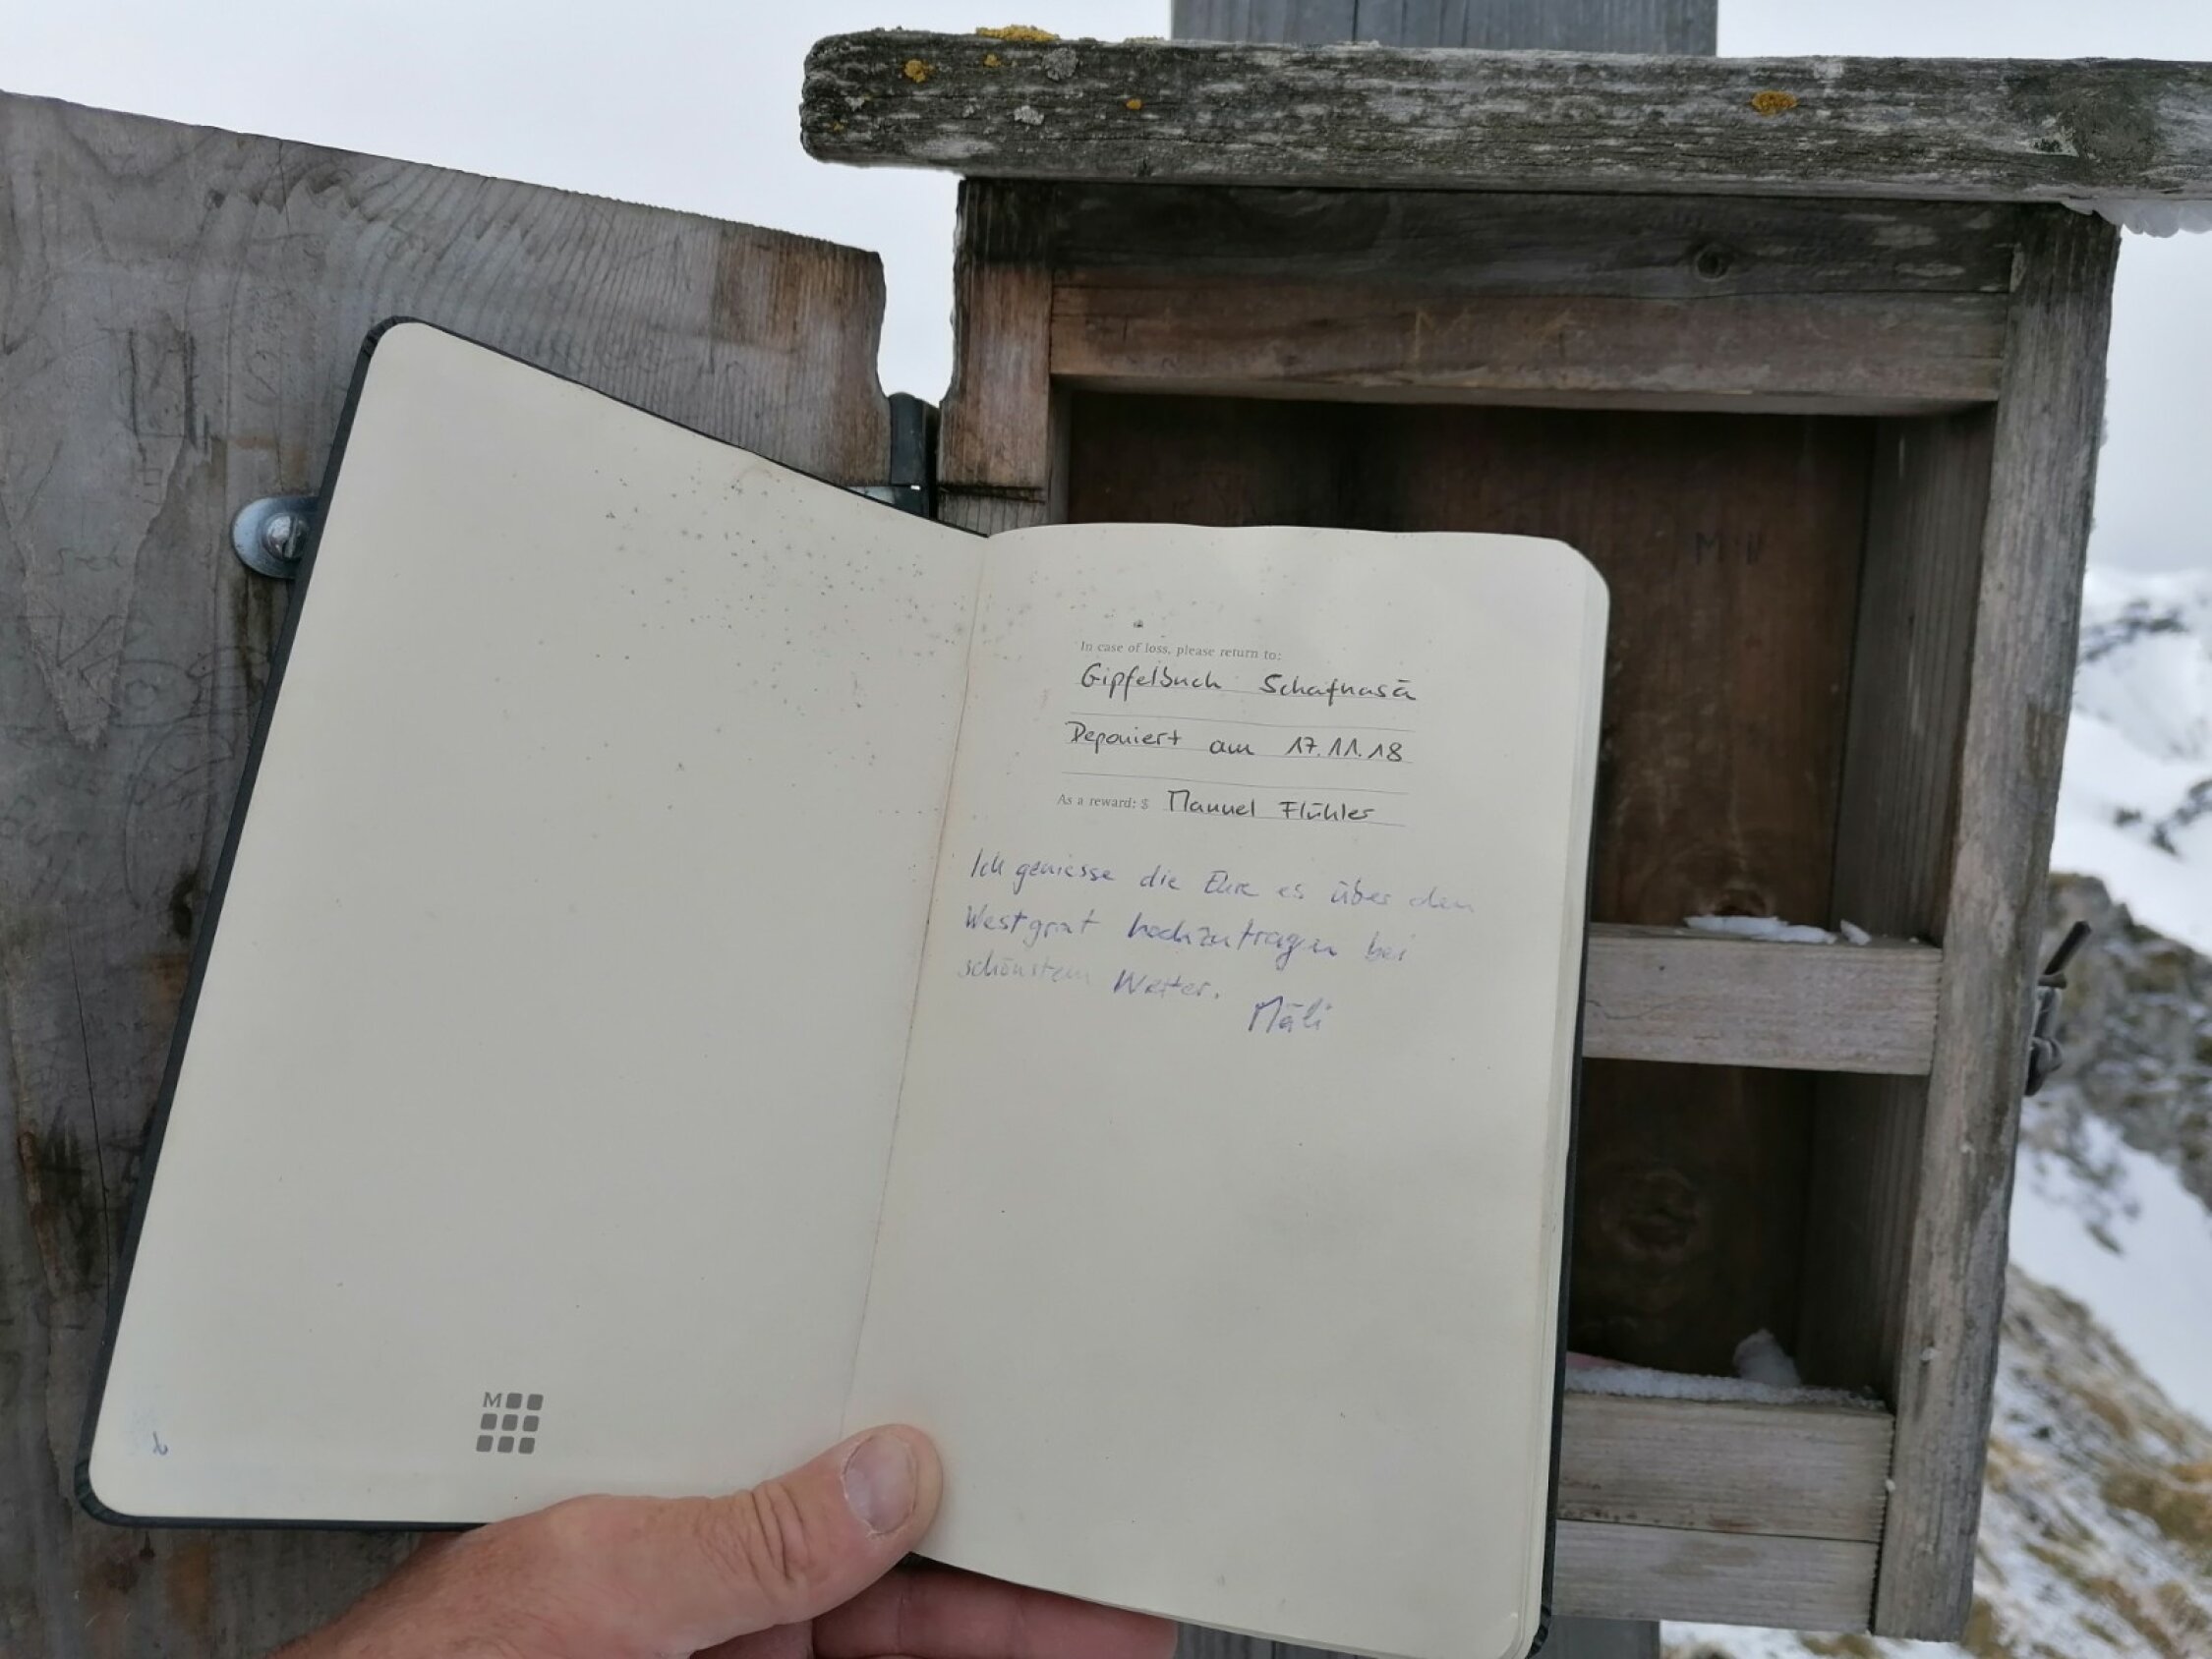 In case of loss, please return to:
Gipfelbuch Schafnasä
Deponiert am 17.11.18
As a reward: $ Manuel Flühler
Ich geniesse die Ehre es über den
Westgrat hochzutragen bei
schönstem Wetter.
M